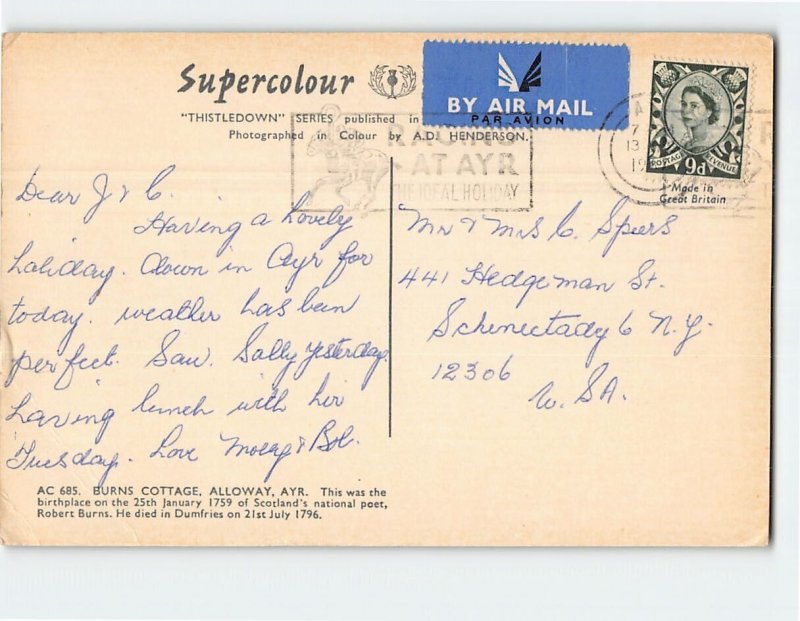 Supercolour
"THISTLEDOWN" SERIES published in
Photographed in Colour by A.D. HENDERSON.
BY AIR MAIL
PAR AVION
RACING
AT AYR
THE IDEAL HOLIDAY
POSTAGE REVENUE
9d
Made in
Great Britain
Dear J & C.
Having a lovely
holiday. down in Ayr for
today. weather has been
perfect. Saw Sally yesterday.
having lunch with her
Tuesday. Love Molly & Bob.
Mr & Mrs C. Speers
441 Hedgeman St.
Schenectady 6 N.Y.
12306
U.S.A.
AC 685. BURNS COTTAGE, ALLOWAY, AYR. This was the
birthplace on the 25th January 1759 of Scotland's national poet,
Robert Burns. He died in Dumfries on 21st July 1796.